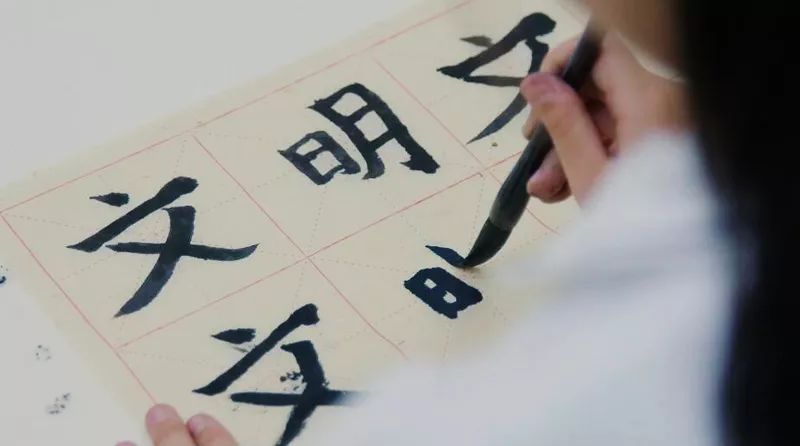 文明文
文